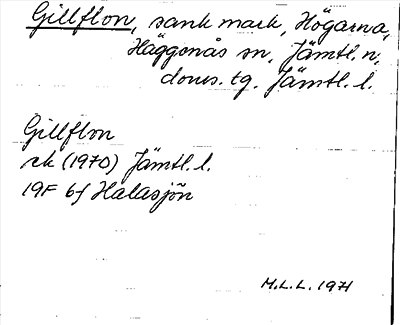 Gillflon, sank mark, Högarna,
Häggenås sn, Jämtl. n,
doms. tg. Jämtl. l.
Gillflon
ek (1970) Jämtl. l.
19F 6f Halasjön
M.L.L. 1971